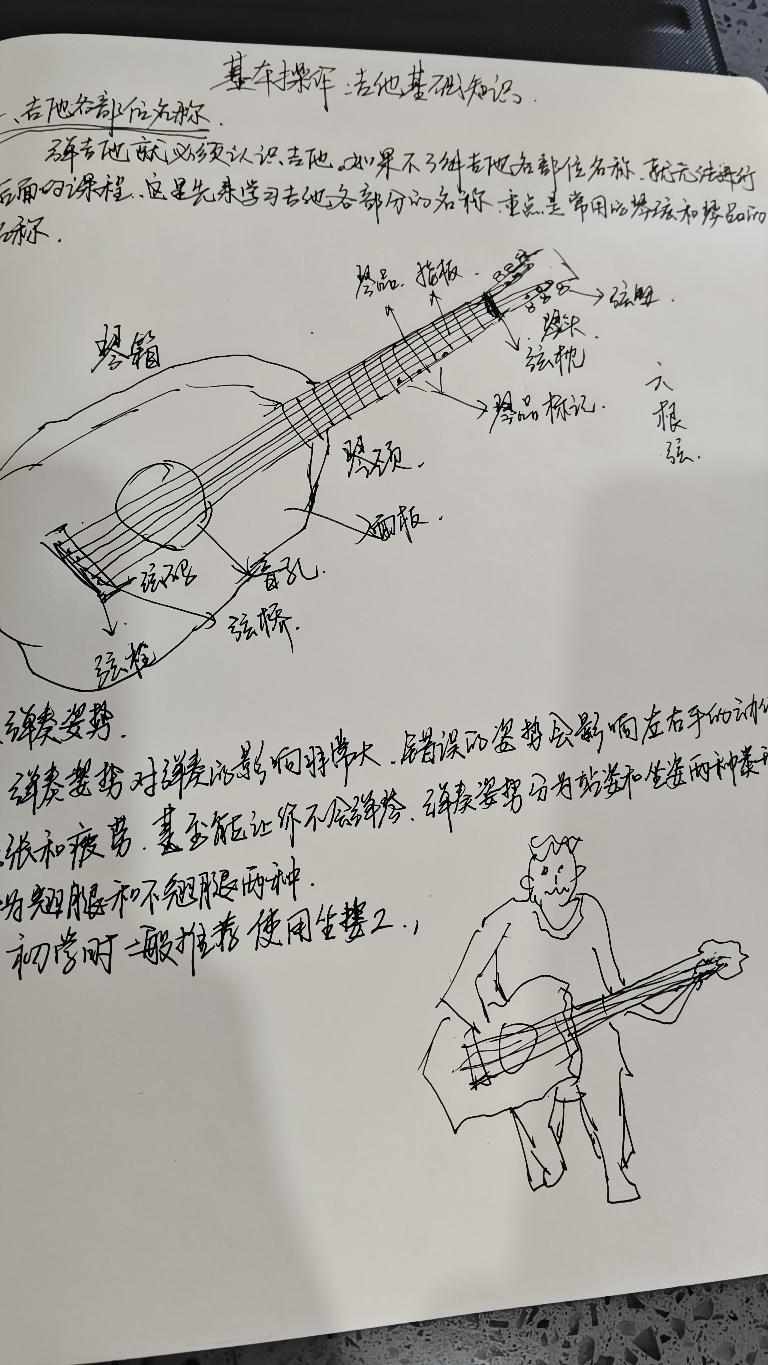 基本操作:吉他基础知识。
一、吉他各部位名称.
弹吉他就必须认识吉他。如果不了解吉他各部位名称.就无法进行
后面的课程.这是先来学习吉他各部分的名称.重点是常用的琴弦和琴品的
名称.
琴品. 指板.
弦钮.
琴头.
弦枕
琴箱
六根弦.
琴品标记.
琴颈.
面板.
弦码
音孔.
弦桥.
弦栓
弹奏姿势.
弹奏姿势对弹奏的影响非常大.错误的姿势会影响左右手的动作
张和疲劳.甚至能让你不会弹琴.弹奏姿势分为站姿和坐姿两种
为翘腿和不翘腿两种.
初学时一般推荐使用坐姿2.,